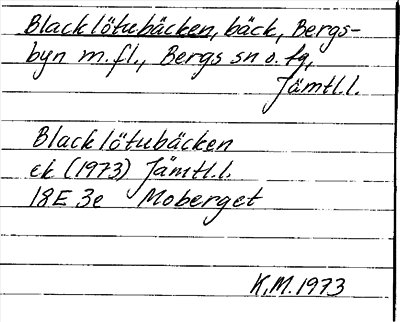 Blacklötubäcken, bäck, Bergs-
byn m.fl., Bergs sn o. fg,
Jämtl.l.
Blacklötubäcken
ek (1973) Jämtl.l.
18E 3e Moberget
K.M. 1973